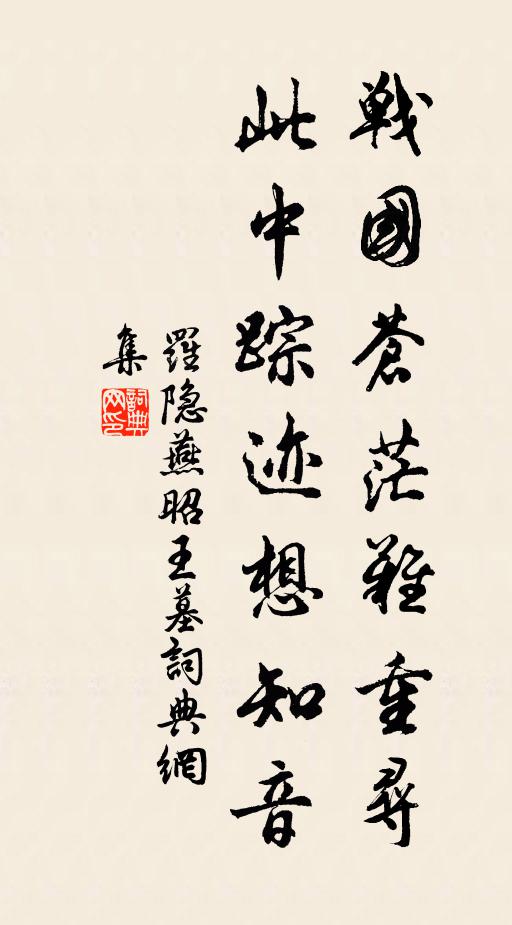 戰國蒼茫難重尋
此中踪迹想知音
羅隐燕昭王墓詞典網
集
詞典
网印